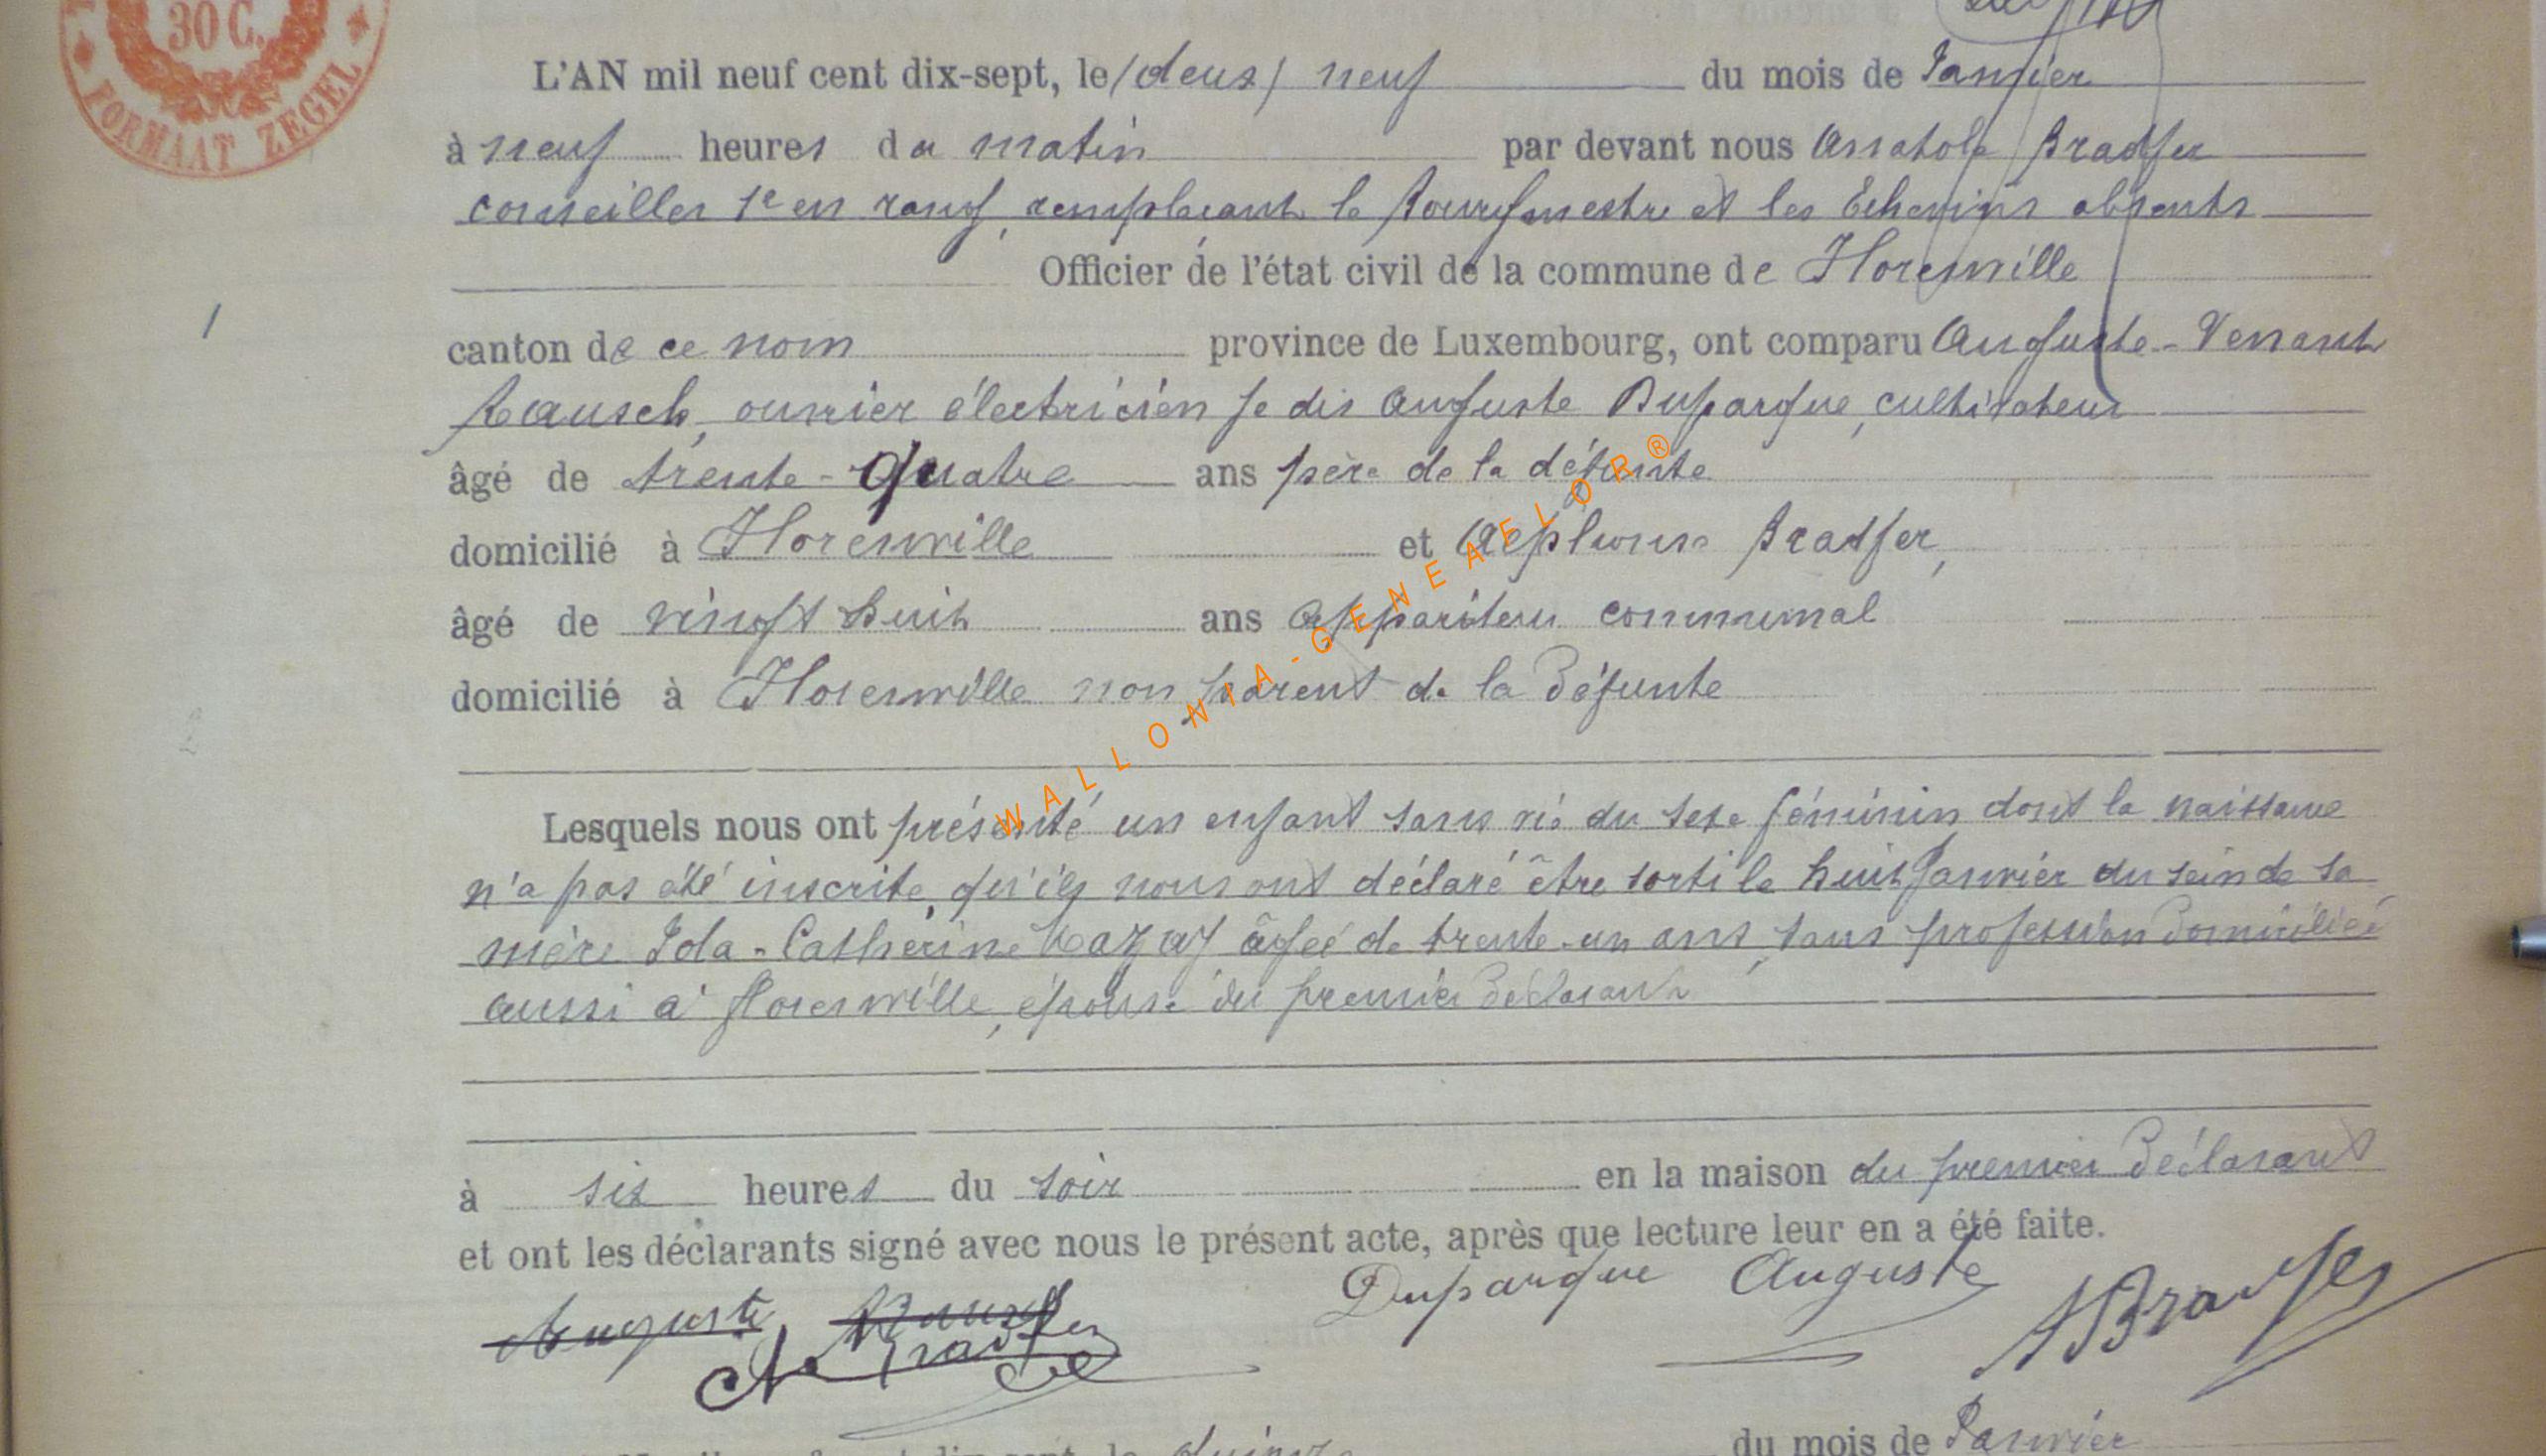 30 C.
FORMAAT ZEGEL
L'AN mil neuf cent dix-sept, le (deux) neuf du mois de Janvier
à neuf heures du matin par devant nous Anatole Bradfer
conseiller 1er en rang, remplaçant le Bourgmestre et les Echevins absents
Officier de l'état civil de la commune de Florenville
1
canton de ce nom province de Luxembourg, ont comparu Auguste-Venant
Bausch, ouvrier électricien je dis Auguste Duparque, cultivateur
âgé de trente-quatre ans père de la défunte
domicilié à Florenville et Alphonse Bradfer,
âgé de vingt huit ans appariteur communal
domicilié à Florenville non parent de la Défunte
2
WALLONIA-GENEAFLOR®
Lesquels nous ont présenté un enfant sans vie du sexe féminin dont la naissance
n'a pas été inscrite, qu'ils nous ont déclaré être sorti le huit Janvier du sein de sa
mère Ida-Catherine âgée de trente-un ans, sans profession Domiciliée
aussi à Florenville, épouse du premier Déclarant
à six heures du soir en la maison du premier Déclarant
et ont les déclarants signé avec nous le présent acte, après que lecture leur en a été faite.
Duparque Auguste
Auguste Bausch
A Bradfer
A Bradfer
du mois de Janvier